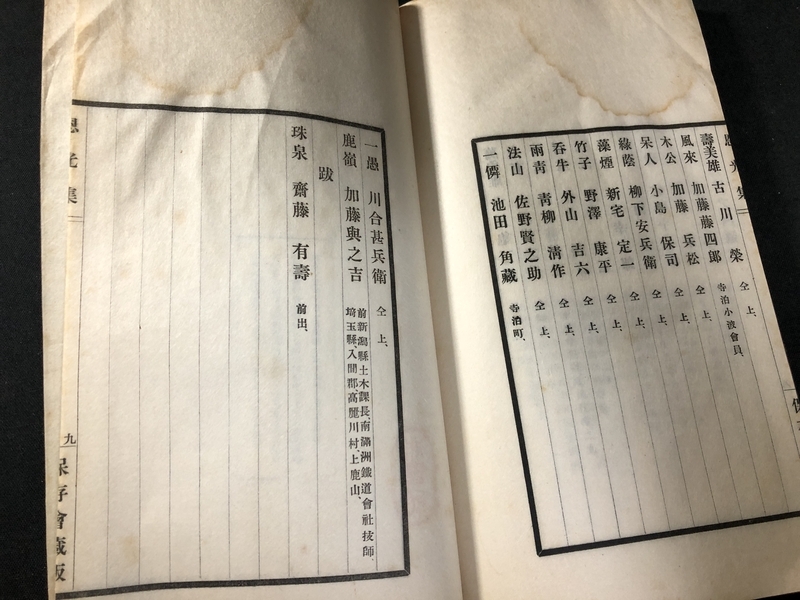 壽美雄 古川 榮 仝上、
風來 加藤藤四郎 寺泊小波會員、
木公 加藤 兵松 仝上、
呆人 小島 保司 仝上、
綠蔭 柳下安兵衛 仝上、
藻煙 新宅 定一 仝上、
竹子 野澤 康平 仝上、
呑牛 外山 吉六 仝上、
雨靑 靑柳 淸作 仝上、
法山 佐野賢之助 仝上、
一儕 池田 角藏 寺泊町、
一愚 川合甚兵衛 仝上、
鹿嶺 加藤與之吉 前新潟縣土木課長、南滿洲鐵道會社技師、
埼玉縣、入間郡、高麗川村、上鹿山、
跋
珠泉 齋藤 有壽 前出、
九
保存會藏版